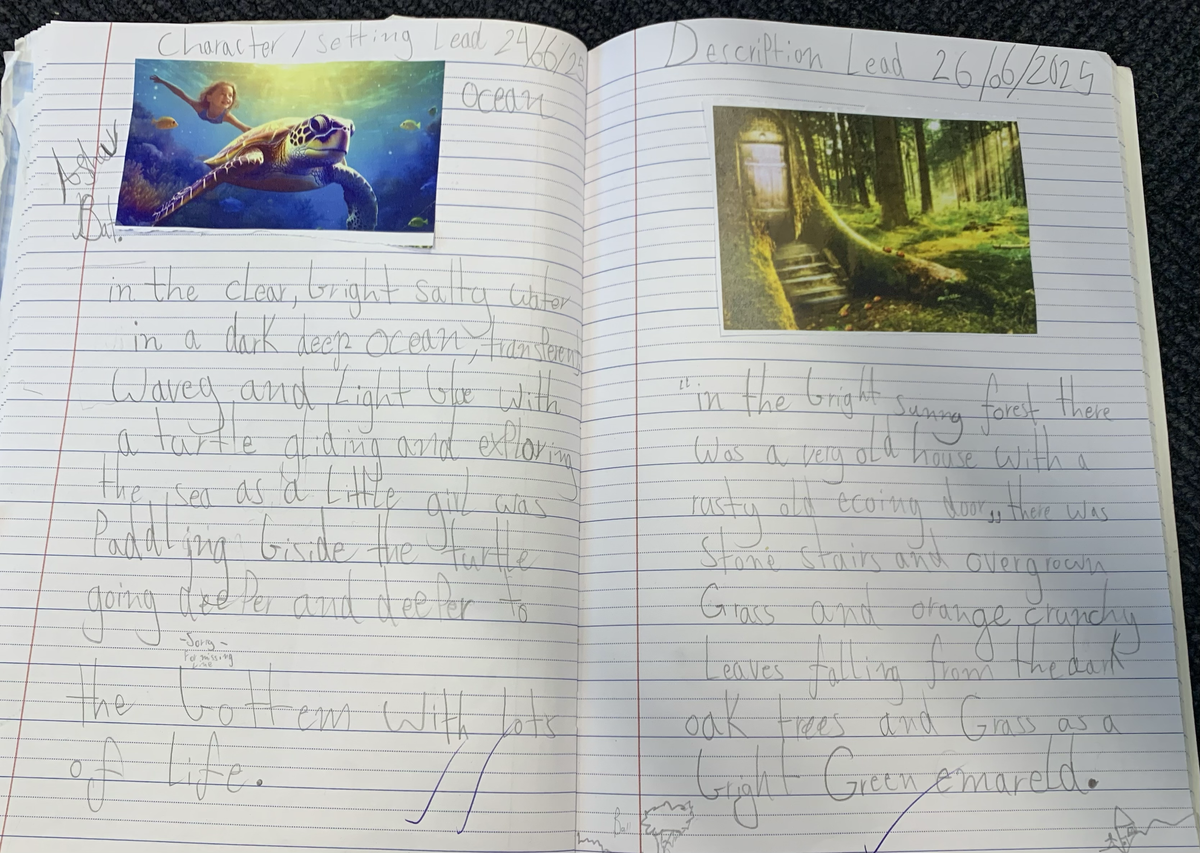 Character/Setting Lead 24/06/25
Ocean
in the clear, bright salty water
in a dark deep ocean, transferent
Wavey and Light blue with
a turtle gliding and exploring
the sea as a Little girl was
Paddling biside the turtle
going deeper and deeper to
-Sorry-
the bottem with lots
of Life.
Description Lead 26/06/2025
"in the bright sunny forest there
Was a very old house with a
rusty old ecoing door" there was
Stone stairs and overgrown
Grass and orange crunchy
Leaves falling from the dark
oak trees and Grass as a
bright Green emareld.